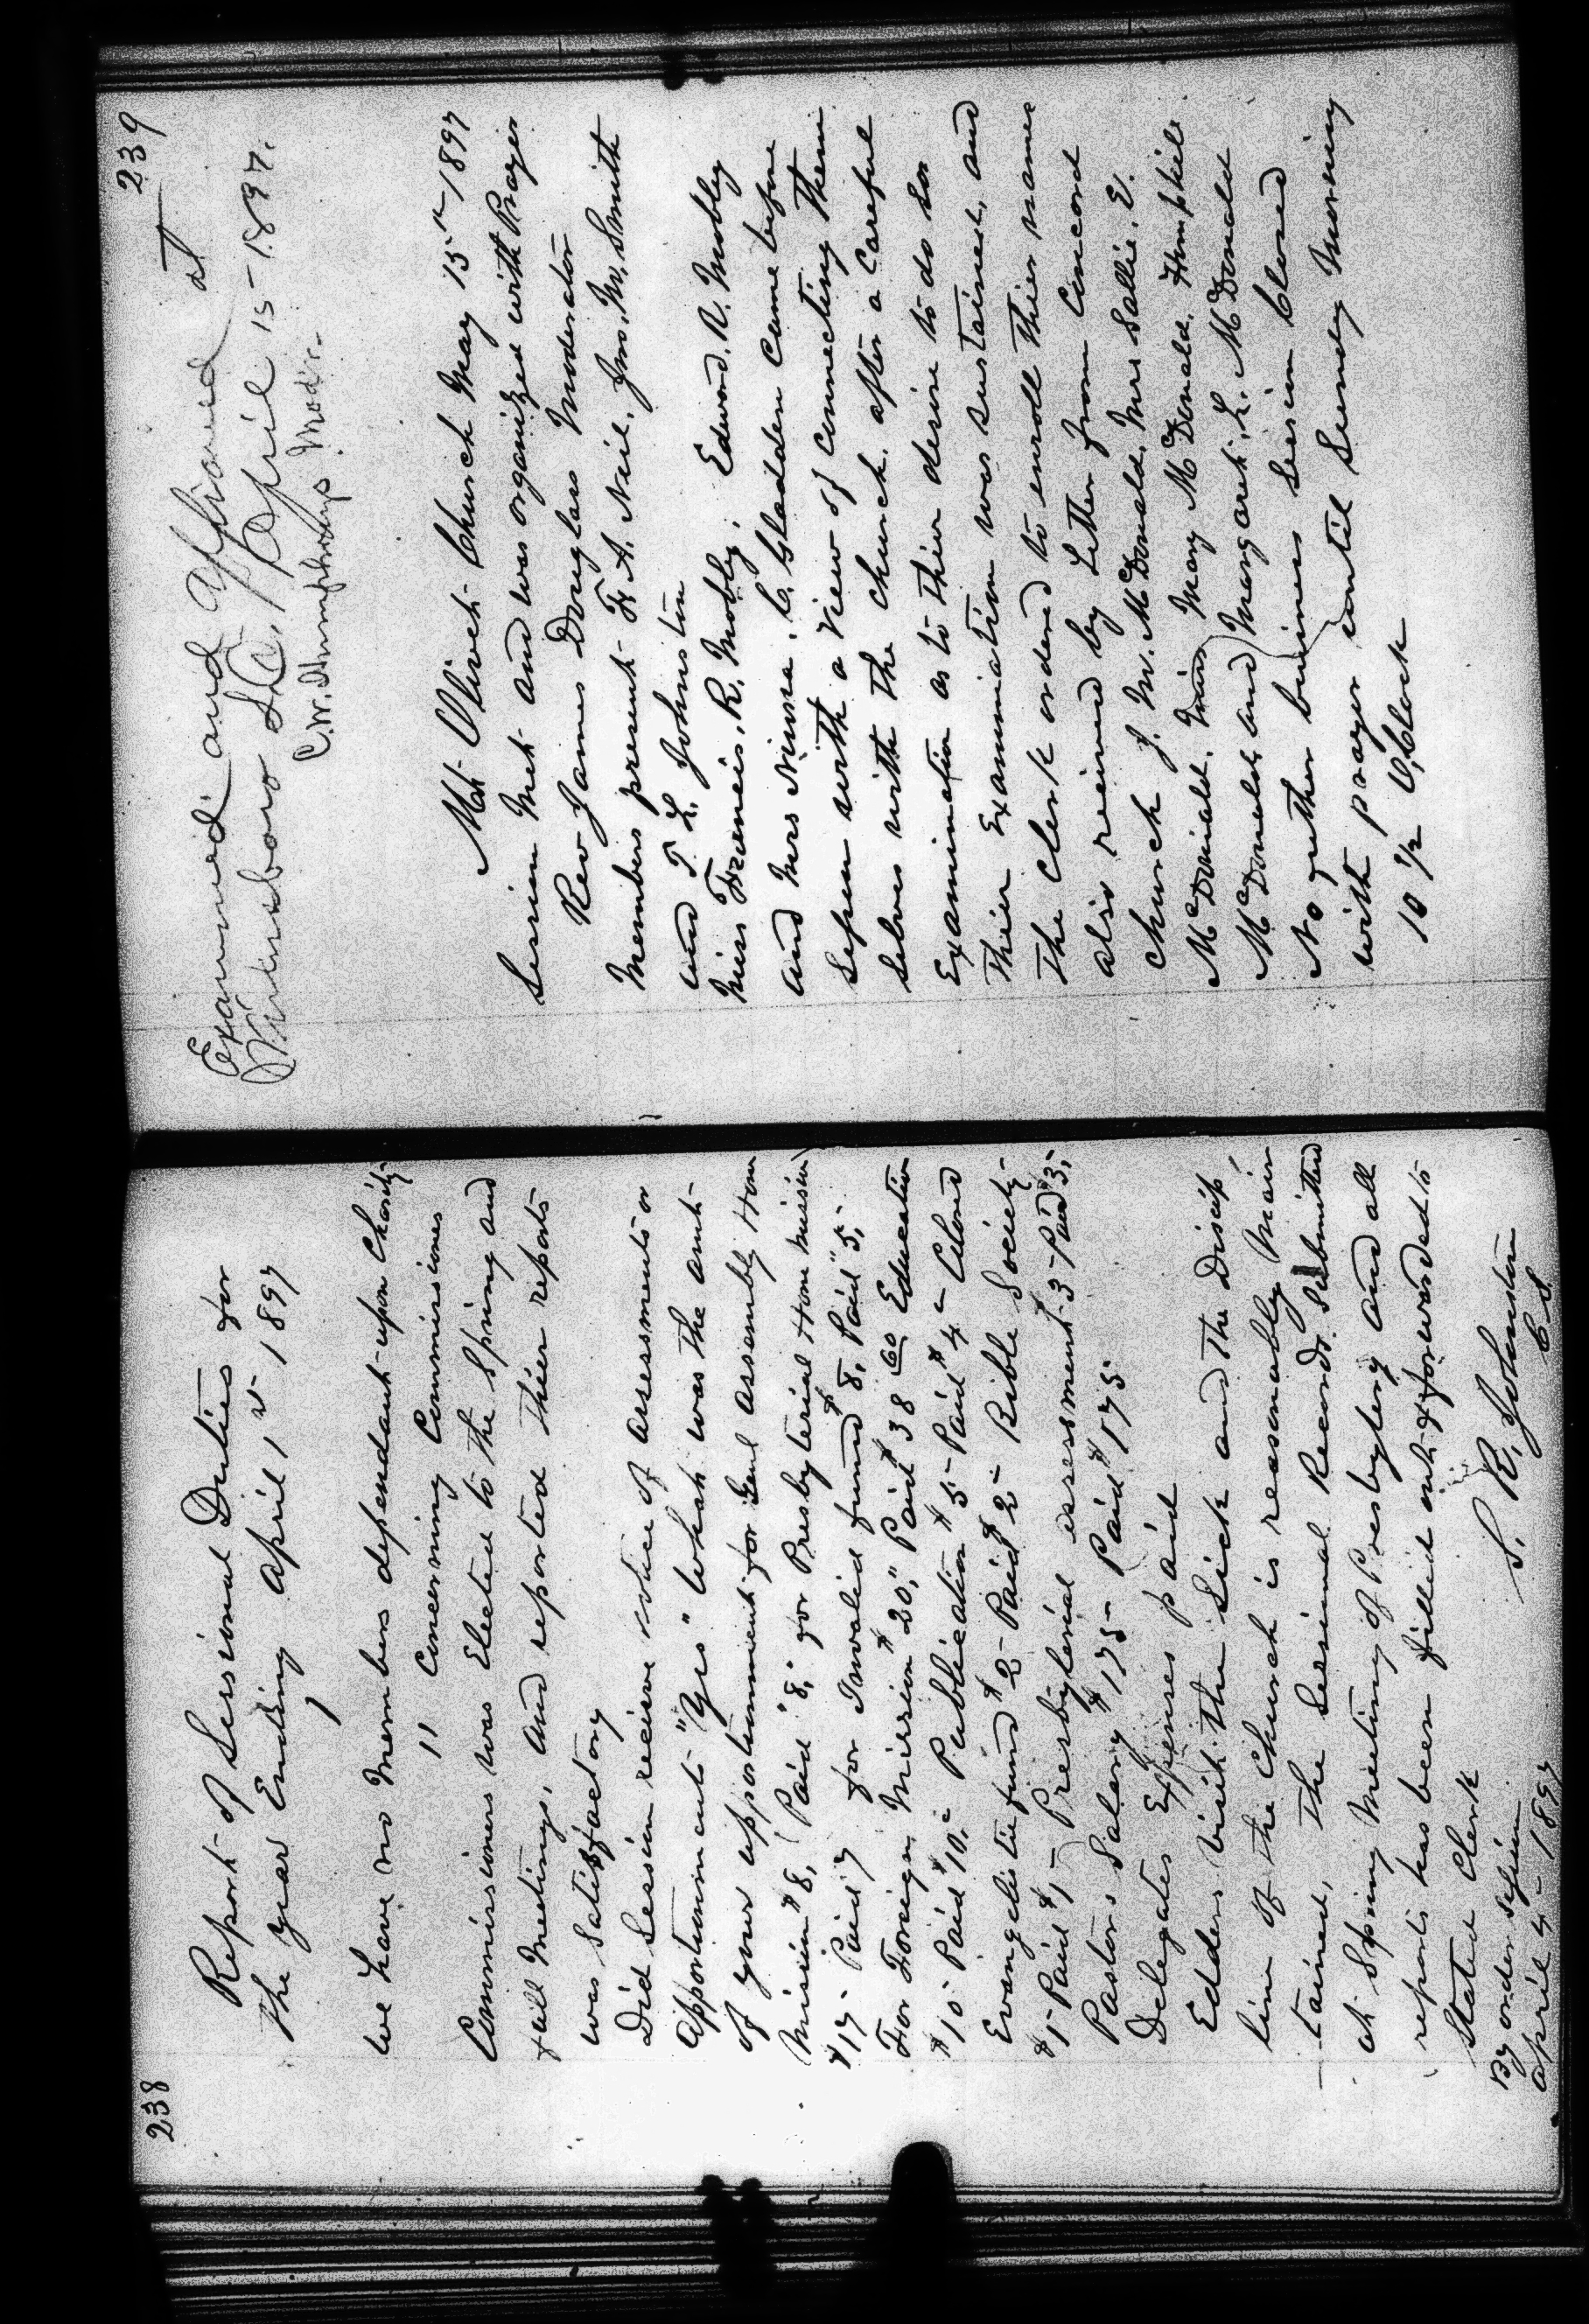 238
Report of Sessional Duties for
The year Ending April 1st 1897
We have no Members dependant upon Charity
" Concerning Commissiones
Commissioners was Elected to the Spring and
fall Meetings, and reported thier reports
was Satisfactory
Did Session receive notice of assessments or
apportionments "Yes" What was the amt
of your apportionment for Genl assembly Home
Mission $8, Paid "8," for Presbyterial Home mission
$17- Paid 7 for Invalid fund $8, Paid "5,-
For Foreign Mission $20," Paid $38 60 Education
$10- Paid $10,- Publication $5- Paid $4- Colored
Evangelistic fund $2- Paid $2- Bible Society
$1- Paid $1- Presbyterial assessment $3- Paid $3,-
Pastors Salary $175- Paid $175-
Delegates Expenses paid
Edders visit the Sick and the Discip
line of the Church is reasonably Main
tained, The Sessional Records Submitted
at Spring Meeting of Presbytery and all
reports has been filled out & forwarded to
Stated Clerk
By order Session S. R. Johnston
April 4- 1897 C.S.
239
Examined and approved at
Winnsboro S.C., April 15- 1897.
C.W. Humphreys Mod'r.
Mt Olivet Church May 15th 1897
Session Met and was organized with Prayer
Rev James Douglass Moderator
Members present T. A. Neil, Jno. M. Smith
and T. L. Johnston
Miss Francis, R. Mobley, Edward, R. Mobley
and Mrs Ninna, C. Gladden Came before
Session with a view of Connecting Them
Selves with the Church, after a Careful
Examination as to thier desire to do so
Thier Examination was sustained, and
The Clerk ordered to enroll Thier names
also recived by Letter from Concord
Church J. M. McDonald, Mrs Sallie, E.
McDonald, Miss Mary McDonald, Hemphill
McDonald and Margaret, L. McDonald
No further business Session Closed
with prayer until Sunday Morning
10 1/2 O,Clock